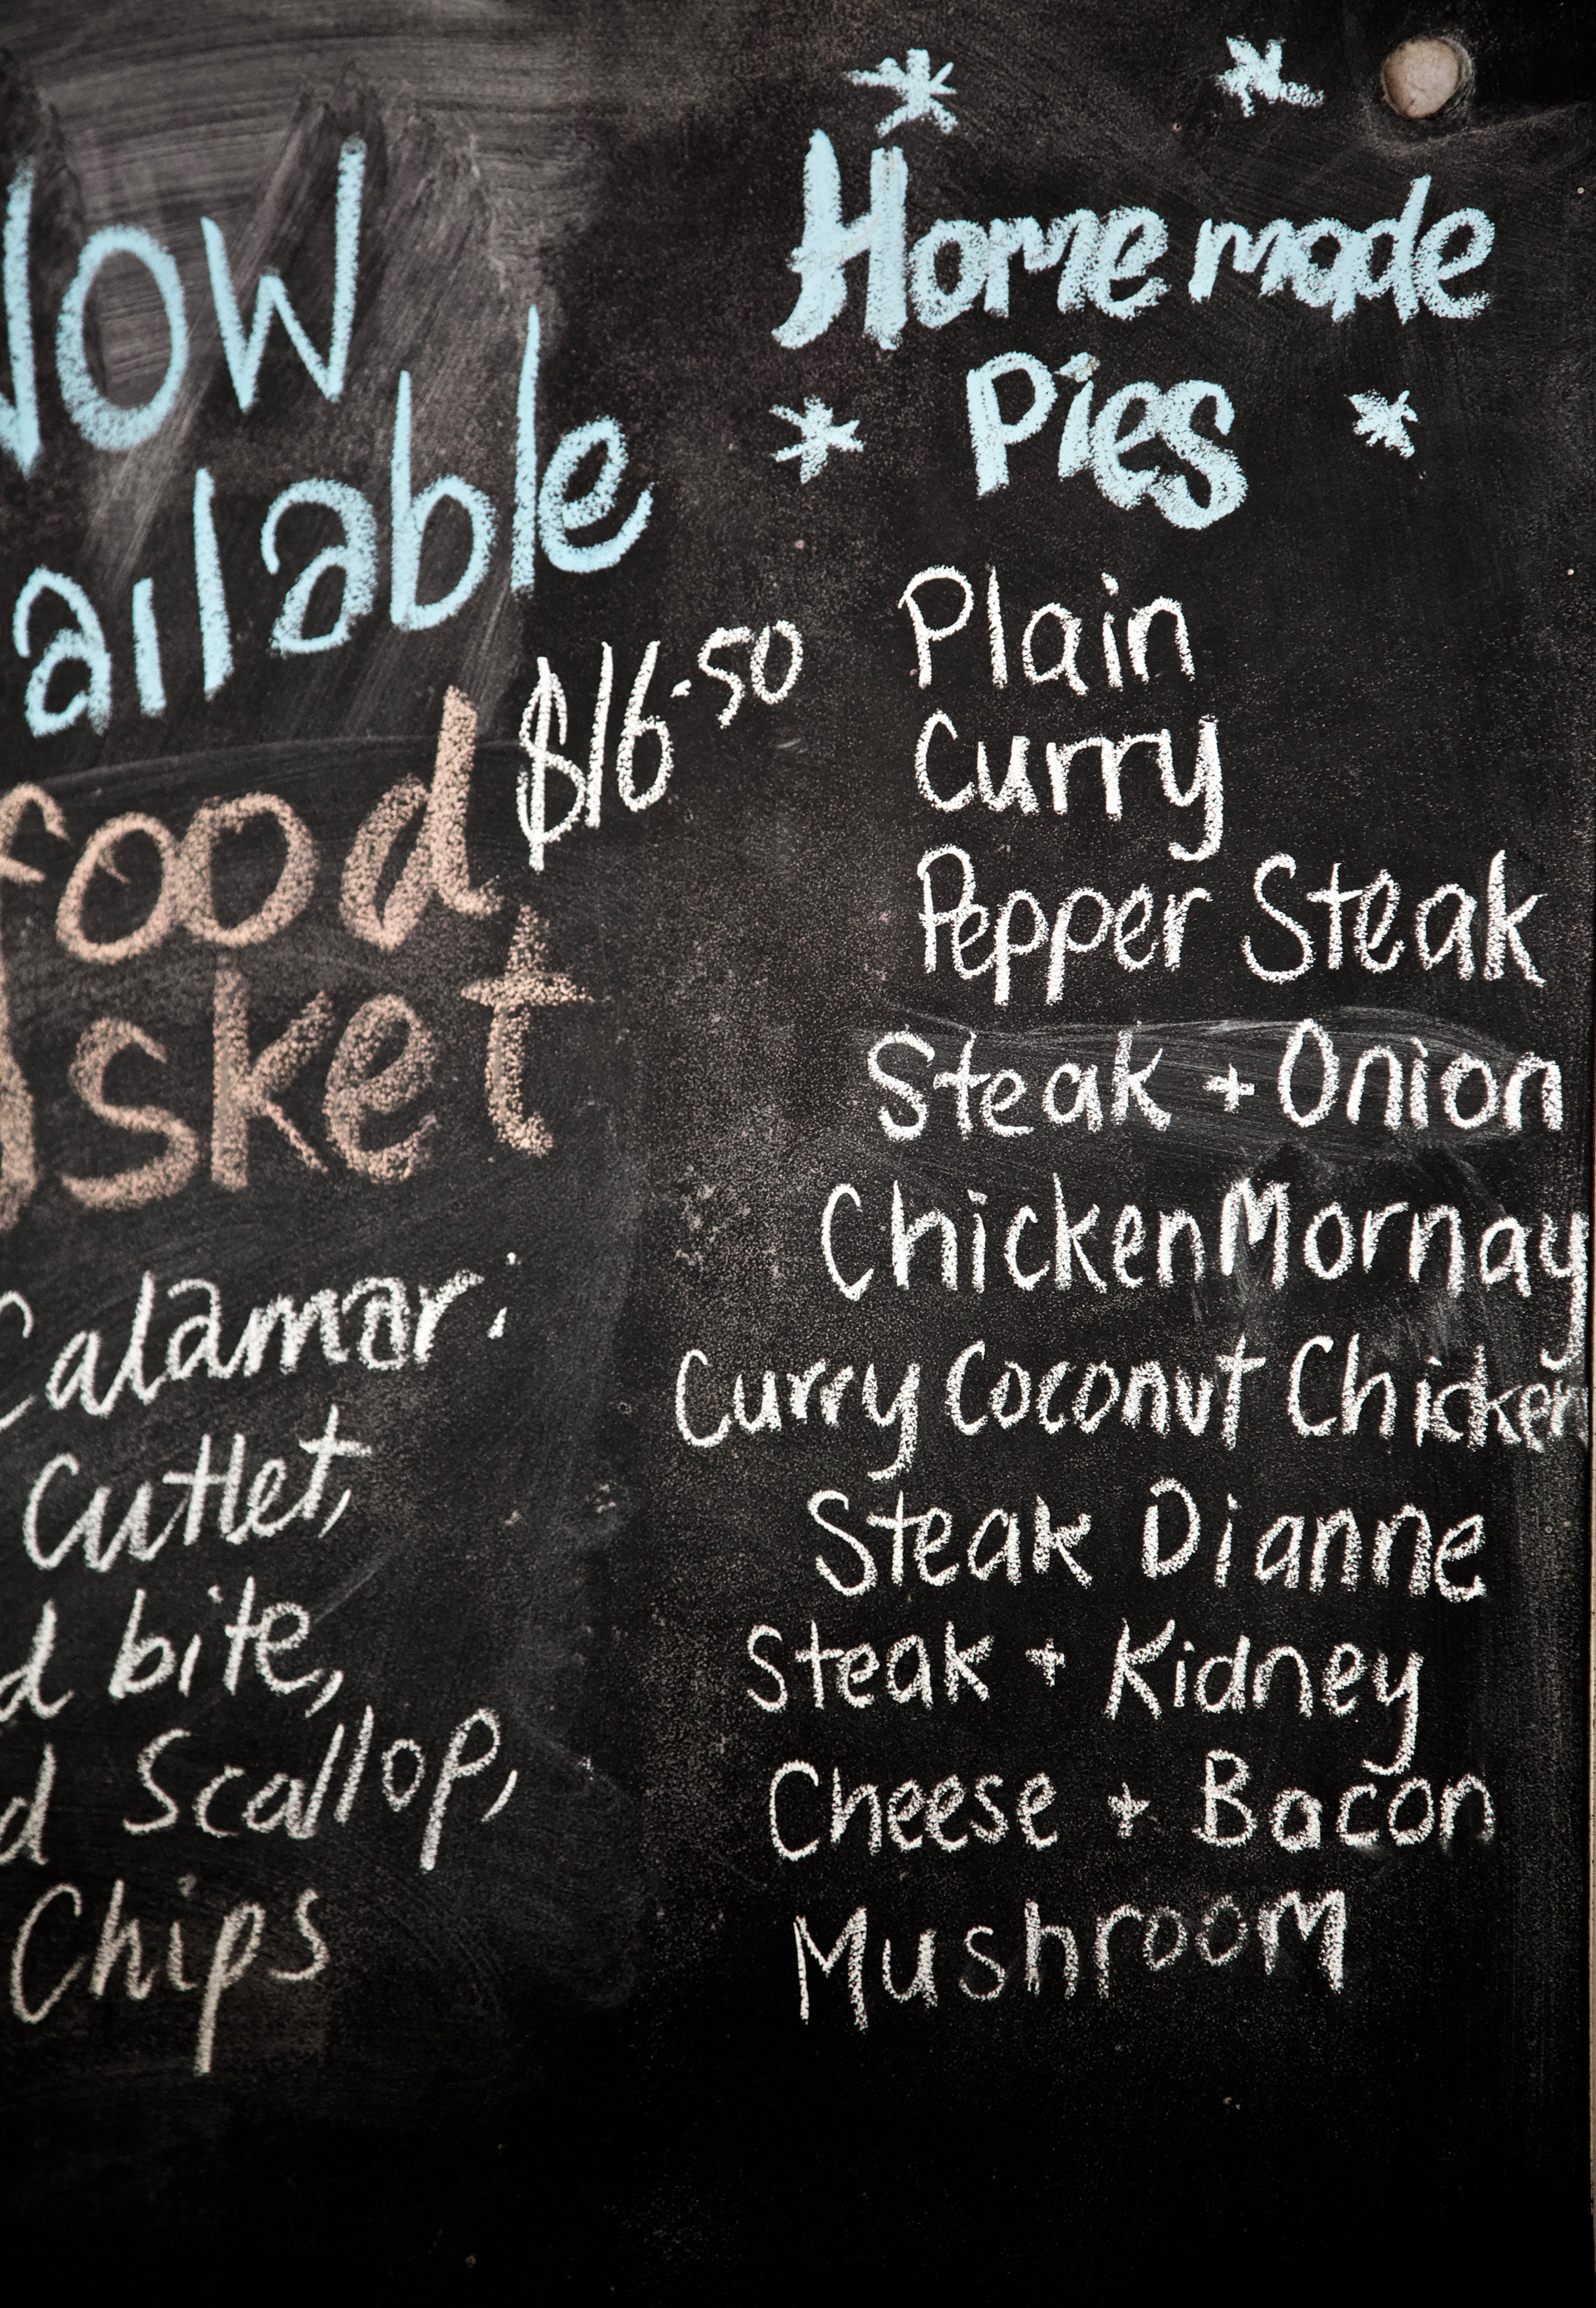 Now
ailable
food $16.50
sket
Calamari
Cutlet,
d bite,
d Scallop,
Chips
Homemade
Pies
Plain
Curry
Pepper Steak
Steak + Onion
Chicken Mornay
Curry Coconut Chicken
Steak Dianne
Steak + Kidney
Cheese + Bacon
Mushroom